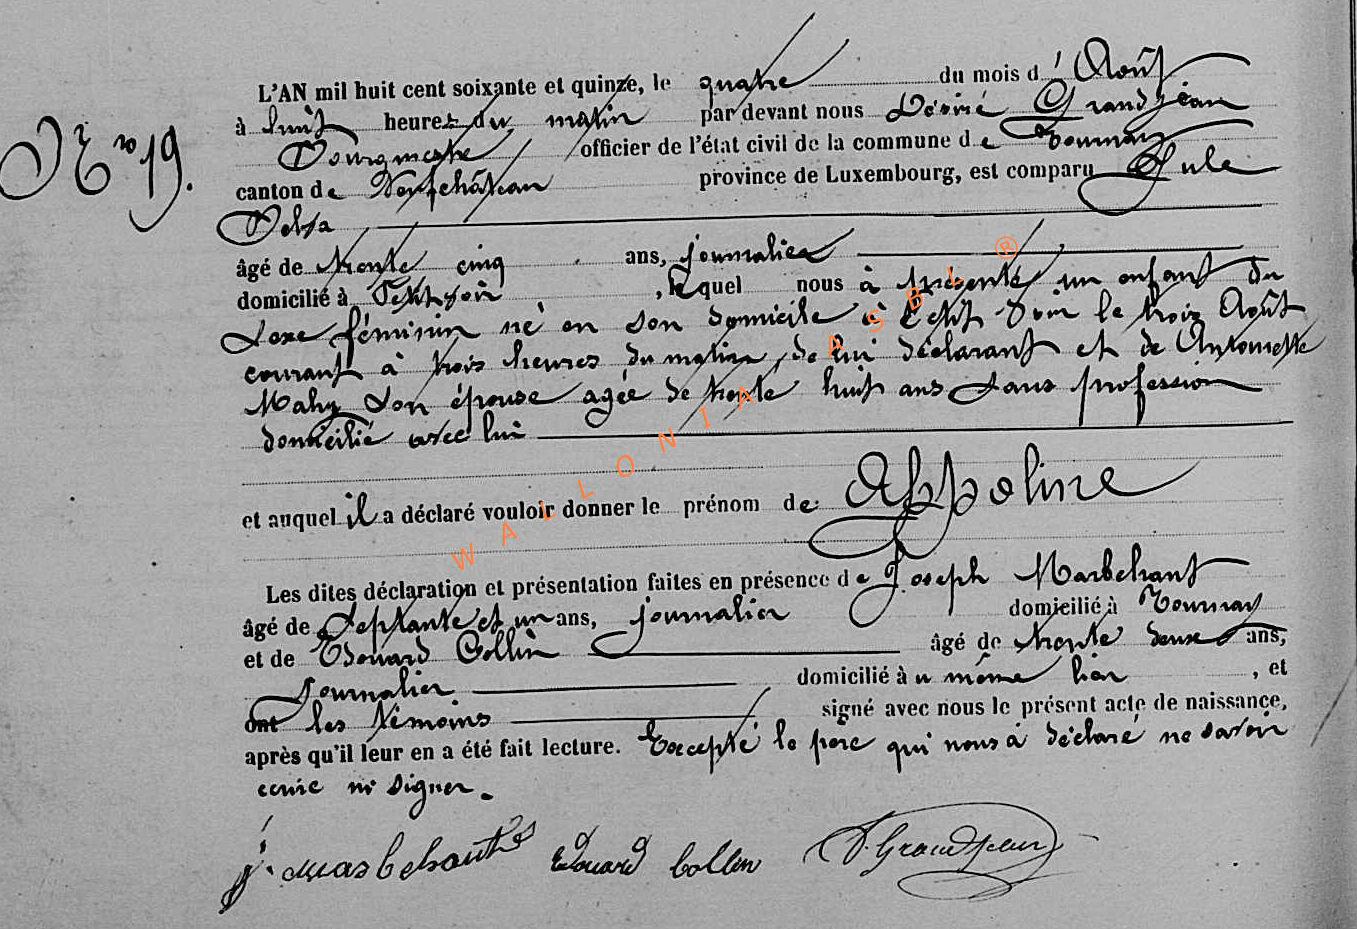 L'AN mil huit cent soixante et quinze, le quatre du mois d'Août
à huit heures du matin par devant nous Désiré Grandjean
Bourgmestre officier de l'état civil de la commune de Tournay
canton de Neufchâteau province de Luxembourg, est comparu Jule
N° 19.
âgé de trente cinq ans, journalier
domicilié à Petitvoir, lequel nous à présenté un enfant du
sexe féminin né en son domicile à Petit Voir le trois Août
courant à trois heures du matin, de lui déclarant et de Antoinette
Mahy son épouse agée de trente huit ans sans profession
domicilié avec lui
et auquel il a déclaré vouloir donner le prénom de Appoline
Les dites déclaration et présentation faites en présence de Joseph Marbehant
âgé de septante et un ans, journalier domicilié à Tournay
et de Edouard Collin âgé de trente deux ans,
journalier domicilié à u même lieu, et
ont les témoins signé avec nous le présent acte de naissance,
après qu'il leur en a été fait lecture. Excepté le père qui nous à déclaré ne savoir
écrire ni signer.
Edouard Collin D. Grandjean
WALLONIA ASBL ®